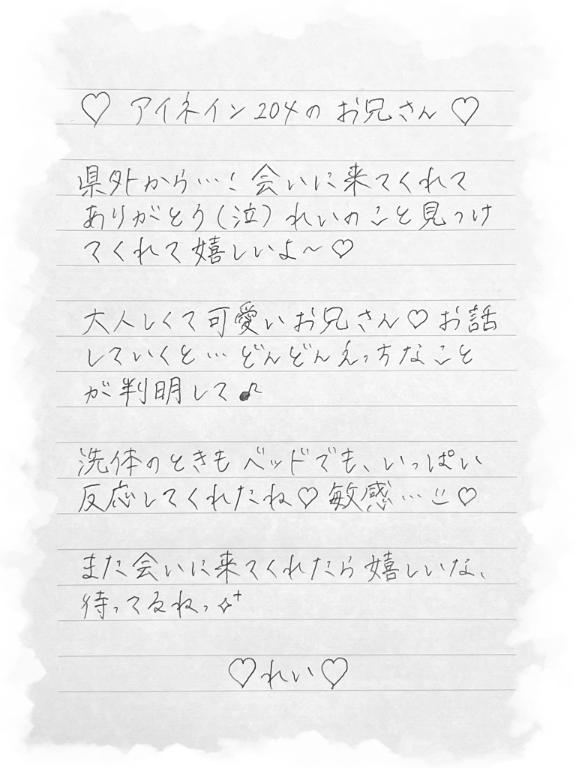 ♡ アイネイン204の お兄さん ♡
県外から…! 会いに来てくれて
ありがとう(泣) れいのこと見つけ
てくれて嬉しいよ～♡
大人しくて可愛いお兄さん♡お話
していくと…どんどんえっちなこと
が判明して♪
洗体のときもベッドでも、いっぱい
反応してくれたね♡敏感…♡
また会いに来てくれたら嬉しいな、
待ってるねっ✧⁺
♡れい♡